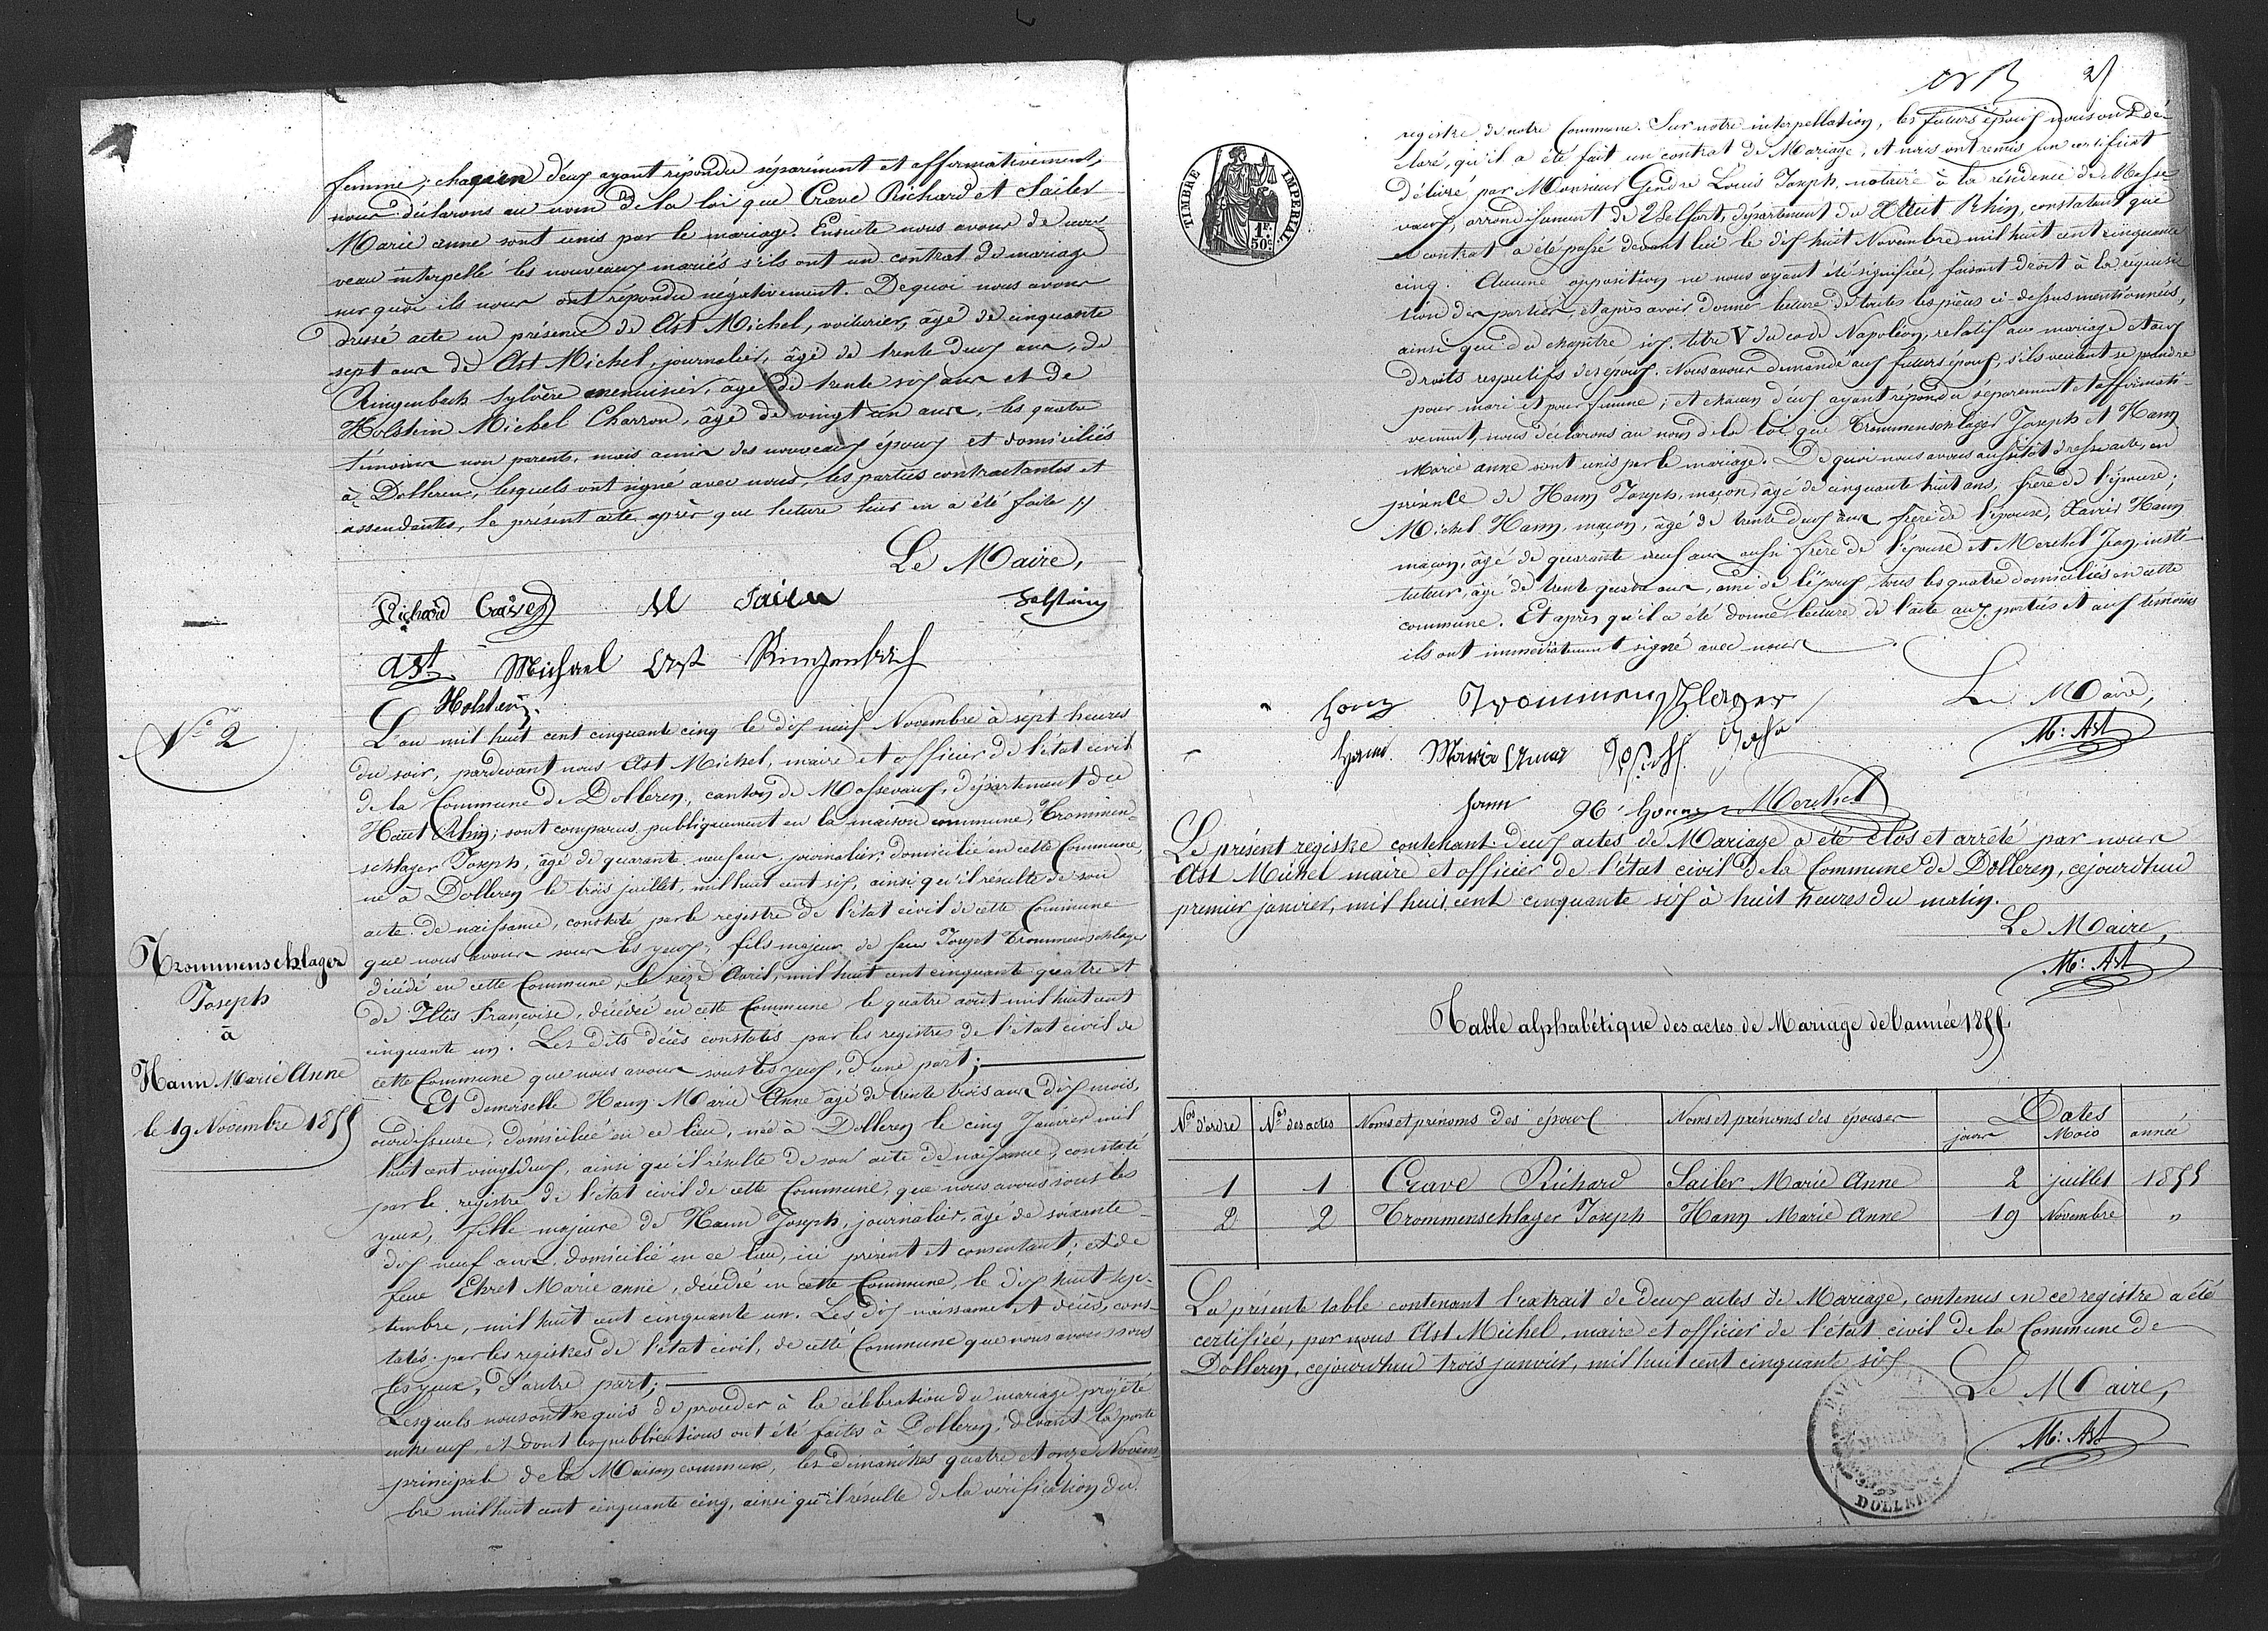 femme; chaquun d'eux ayant répondu séparément et affirmativement,
nous déclarons au nom de la loi que Crave Richard et Sailer
Marie anne sont unis par le mariage. Ensuite nous avons de nou-
veau interpellé les nouveaux mariés s'ils ont un contrat de mariage
sur quoi ils nous ont répondu négativement. De quoi nous avons
dressé acte en présence de Ast Michel, voiturier, âgé de cinquante
sept ans de Ast Michel, journalier, âgé de trente deux ans, de
Ringenbach Sylvère menuisier, âgé de trente six ans et de
Holstein Michel Charron, âgé de vingt un ans, les quatre
témoins non parents, mais amis des nouveaux époux et domiciliés
à Dolleren, lesquels ont signé avec nous, les parties contractantes et
assendantes, le présent acte après que lecture leur en a été faite
Le Maire,
Richard Crave M Sailer
Ast Michael Ast Ringenbach
Holstein
N° 2
L'an mil huit cent cinquante cinq le dix neuf Novembre à sept heures
du soir, pardevant nous Ast Michel, maire et officier de l'état civil
de la Commune de Dolleren, canton de Massevaux, département du
Haut Rhin; sont comparus publiquement en la maison commune, Trommen-
schlager Joseph, âgé de quarante neuf ans, journalier, domicilié en cette Commune,
né à Dolleren le trois juillet, mil huit cent six, ainsi qu'il résulte de son
acte de naissance, constaté par le registre de l'état civil de cette Commune
que nous avons sous les yeux; fils majeur de feu Joseph Trommenschlager
décédé en cette Commune, le seize Avril, mil huit cent cinquante quatre et
de Iltis Françoise, décédée en cette Commune le quatre août mil huit cent
cinquante un. Les dits décès constatés par les registres de l'état civil de
cette Commune que nous avons sous les yeux, d'une part;
Trommenschlager
Joseph
à
Hann Marie Anne
le 19 Novembre 1855
Et demoiselle Hann Marie Anne âgé de trente trois ans dix mois,
ourdisseuse, domiciliée en ce lieu, née à Dolleren le cinq Janvier mil
huit cent vingt deux, ainsi qu'il résulte de son acte de naissance, constaté
par le registre de l'état civil de cette Commune, que nous avons sous les
yeux, fille majeure de Hann Joseph, journalier, âgé de soixante
dix neuf ans, domicilié en ce lieu, ici présent et consentant; et de
feue Ehret Marie anne, décédée en cette Commune, le dix huit sep-
tembre, mil huit cent cinquante un. Les dix naissance et décès, cons-
tatés par les registres de l'état civil, de cette Commune que nous avons sous
les yeux, d'autre part;
Lesquels nous ont requis de procéder à la célébration du mariage projeté
entre eux, et dont les publications ont été faites à Dolleren, devant la porte
principale de la Maison commune, les dimanches quatre et onze Novem-
bre mil huit cent cinquante cinq, ainsi qu'il résulte de la vérification du
2
TIMBRE IMPERIAL
1f. 50c.
registre de notre Commune. Sur notre interpellation, les futurs époux nous ont dé-
claré, qu'il a été fait un contrat de Mariage, et nous ont remis un certificat
délivré par Monsieur Gendre Louis Joseph, notaire à la résidence de Masse-
vaux, arrondissement de Belfort, département du Haut Rhin, constatant que
contrat a été passé devant lui le dix huit Novembre mil huit cent cinquante
cinq. Aucune opposition ne nous ayant été signifiée, faisant droit à la réquisi-
tion des parties, et après avoir donner lecture de toutes les pièces ci-dessus mentionnées,
ainsi que du chapitre six, titre V du code Napoléon, relatif au mariage et aux
droits respectifs des époux. Nous avons demandé aux futurs époux, s'ils veulent se prendre
pour mari et pour femme; et chacun d'eux ayant répondu séparement et affirmati-
vement, nous déclarons au nom de la loi que Trommenschlager Joseph et Hann
Marie anne sont unis par le mariage. De quoi nous avons aussitôt dressé acte, en
présence de Hann Joseph, maçon, âgé de cinquante huit ans, frère de l'épouse;
Michel Hann, maçon, âgé de trente deux ans, frère de l'épouse, Xavier Hann
maçon, âgé de quarante neuf ans aussi frère de l'épouse et Merckel Jean, insti-
tuteur, âgé de trente quatre ans, ami de l'époux tous les quatre domiciliés en cette
commune. Et après qu'il a été donné lecture de l'acte aux parties et aux témoins
ils ont immédiatement signé avec nous
Trommenschlager
Le Maire,
M: Ast
Hann Maria Anna
Hann Merckel
Le présent registre contenant deux actes de Mariage a été clos et arrêté par nous
Ast Michel maire et officier de l'état civil de la Commune de Dolleren, cejourd'hui
premier janvier, mil huit cent cinquante six à huit heures du matin.
Le Maire,
M: Ast
Table alphabétique des actes de Mariage de l'année 1855.
Nos d'ordre Nos des actes Noms et prénoms des époux Noms et prénoms des épouses Dates
jours Mois année
1 1 Crave Richard Sailer Marie Anne 2 juillet 1855
2 2 Trommenschlager Joseph Hann Marie Anne 19 Novembre "
La présente table contenant l'extrait de deux actes de Mariage, contenus en ce registre a été
certifiée, par nous Ast Michel, maire et officier de l'état civil de la Commune de
Dolleren, cejourd'hui trois janvier, mil huit cent cinquante six
Le Maire,
M: Ast
DOLLEREN